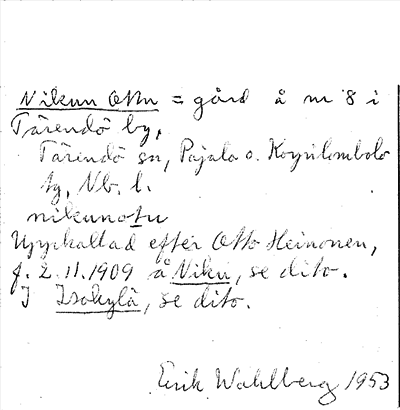 Nikun Ottu = gård å nr 8 i
Tärendö by,
Tärendö sn, Pajala o. Korpilombolo
tg, Nb. l.
nikunotu
Uppkallad efter Otto Heinonen,
f. 2.11.1909 å Niku, se dito.
I Isokylä, se dito.
Erik Wahlberg 1953